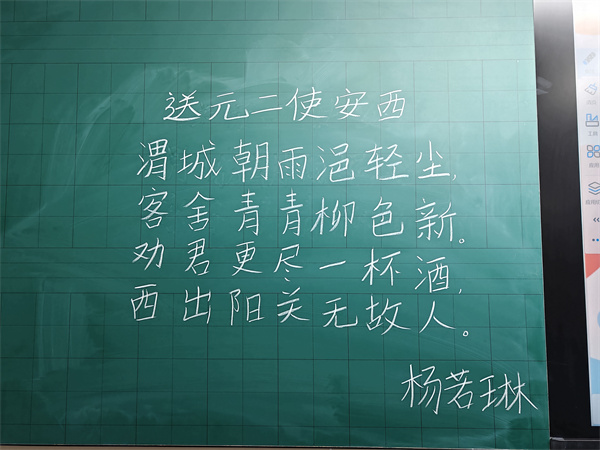 送元二使安西
渭城朝雨浥轻尘,
客舍青青柳色新。
劝君更尽一杯酒,
西出阳关无故人。
杨若琳
工具